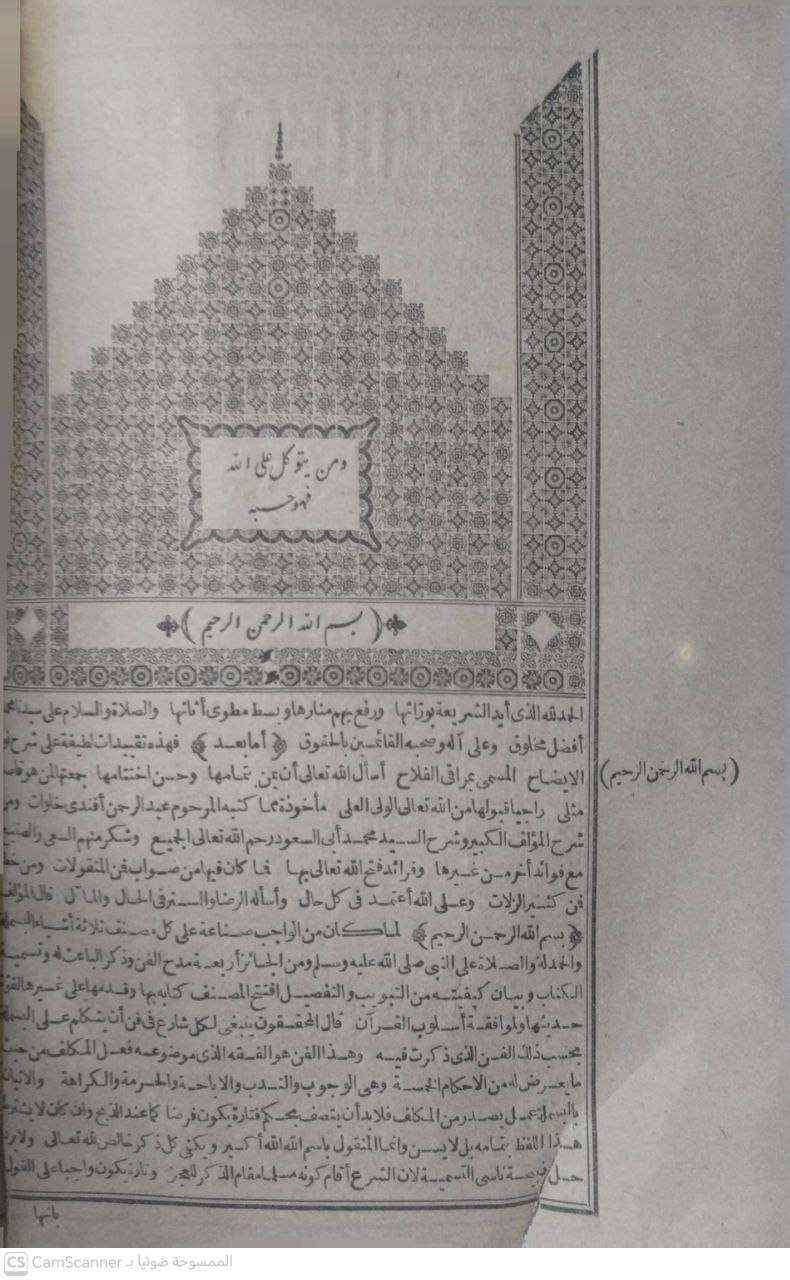 ومن يتوكل على الله
فهو حسبه
(بسم الله الرحمن الرحيم)
الحمد لله الذى أيد الشريعة بوراثها ورفع بهم منارها وبسط مطوى أثنائها والصلاة والسلام على سيدنا محمد
أفضل مخلوق وعلى آله وصحبه القائمين بالحقوق ﴿أما بعد﴾ فهذه تقييدات لطيفة على شرح
الايضاح المسمى بمراقى الفلاح أسأل الله تعالى أن يمن بتمامها وحسن اختتامها جمعتها لمن هو قاصر
مثلى راجيا قبولها من الله تعالى الولى العلى مأخوذة مما كتبه المرحوم عبد الرحمن أفندى خلوات ومن
شرح المؤلف الكبير وشرح السيد محمد أبى السعود رحم الله تعالى الجميع وشكر منهم السعى والصنيع
مع فوائد أخر من غيرها وفرائد فتح الله تعالى بها فما كان فيها من صواب فمن المنقولات ومن خطا
فمن كثير الزلات وعلى الله أعتمد فى كل حال وأسأله الرضا والستر فى الحال والمآل قال المؤلف
﴿بسم الله الرحمن الرحيم﴾ لما كان من الواجب صناعة على كل مصنف ثلاثة أشياء البسملة
والحمدلة والصلاة على النبى صلى الله عليه وسلم ومن الجائز أربعة مدح الفن وذكر الباعث له وتسمية
الكتاب وبيان كيفيته من التبويب والتفصيل افتتح المصنف كتابه بها وقدمها على غيرها لقوة
حديثها ولموافقة أسلوب القرآن قال المحققون ينبغى لكل شارع فى فن أن يتكلم على البسملة
بحسب ذلك الفن الذى ذكرت فيه وهذا الفن هو الفقه الذى موضوعه فعل المكلف من حيث
ما يعرض له من الاحكام الخمسة وهى الوجوب والندب والاباحة والحرمة والكراهة والاتيان
بالبسملة عمل يصدر من المكلف فلا بد أن يتصف بحكم فتارة يكون فرضا كما عند الذبح وان كان لا يشترط
هذا اللفظ بتمامه بل لا يسن وانما المنقول باسم الله الله أكبر ويكفى كل ذكر خالص لله تعالى ولا يرد
حل ذبيحة ناسى التسمية لان الشرع أقام كونه مسلما مقام الذكر للعجز وتارة يكون واجبا على القول
بانها
(بسم الله الرحمن الرحيم)
CS CamScanner الممسوحة ضوئيا بـ